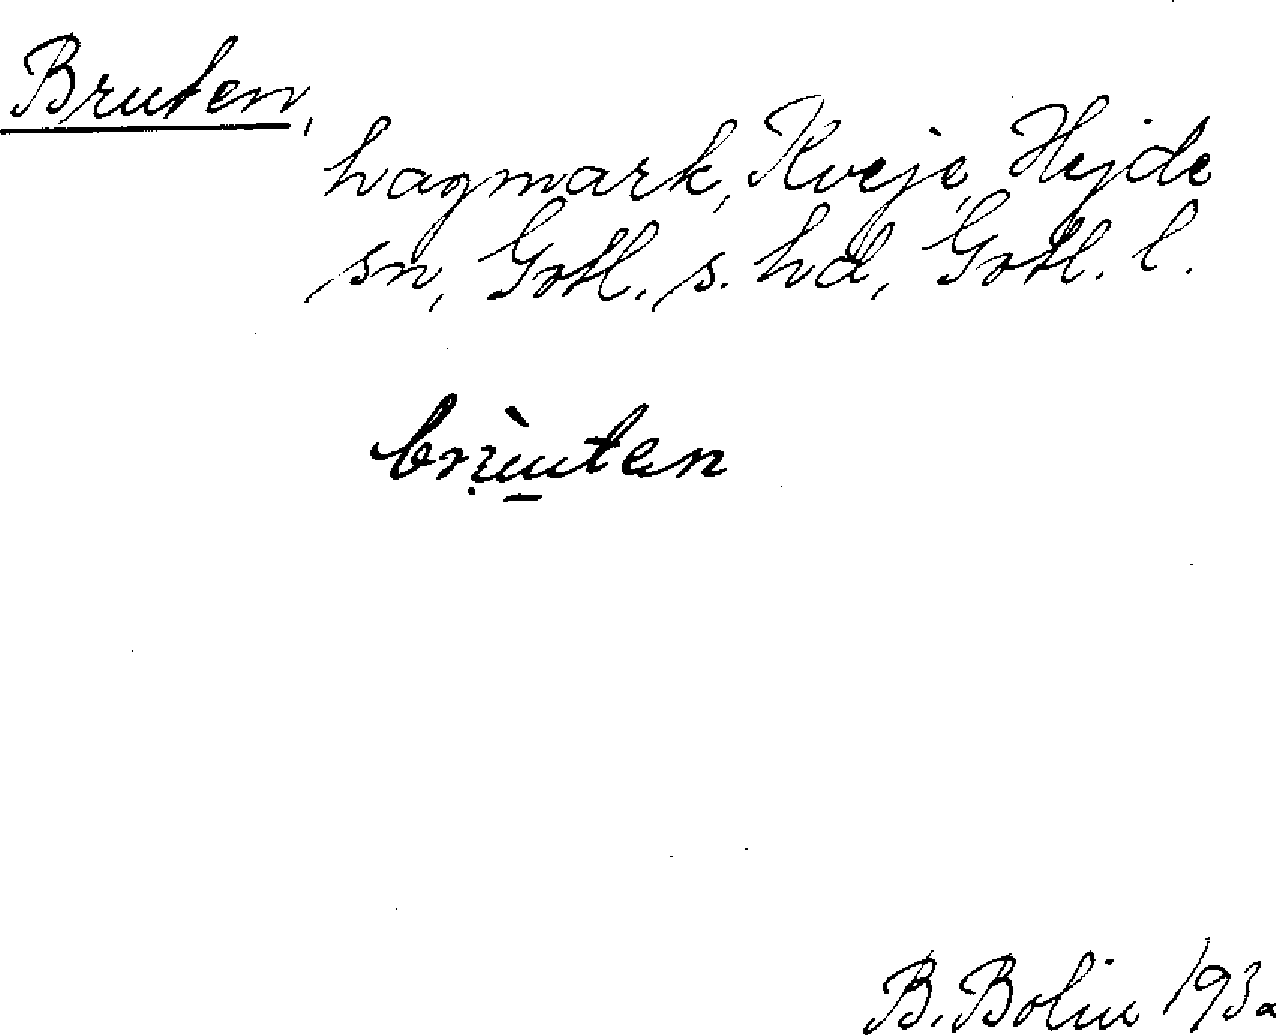 Bruten,
hagmark, Kveje, Hejde
sn, Gotl. s. hd, Gotl. l.
B. Bolin 193